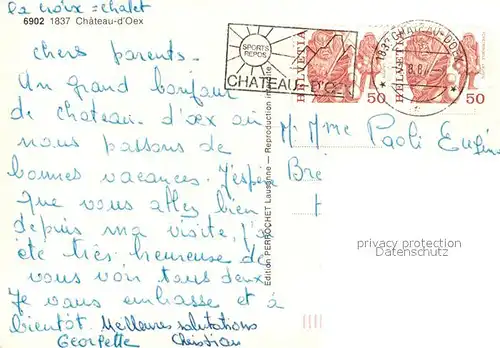 la croix = chalet
6902 1837 Château-d'Oex
chers parents.
Un grand bonjour
de chateau. d'œx où
nous passons de
bonnes vacances. J'espère
que vous allez bien
depuis ma visite, j'ai
été très heureuse de
vous voir tous deux.
Je vous embrasse et à
bientôt. Meilleures salutations
Georgette Christian
Edition PERROCHET Lausanne — Reproduction
SPORTS
REPOS
CHATEAU-D'OEX
HELVETIA
50
HELVETIA
50
1837 CHATEAU-D'OEX
M. Mme Paoli Eugène
Bre
privacy protection
Datenschutz